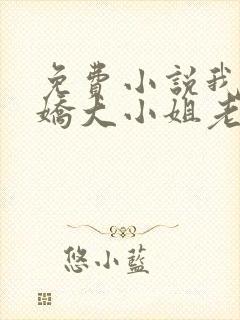 免費小説我
嬌大小姐老
悠小藍